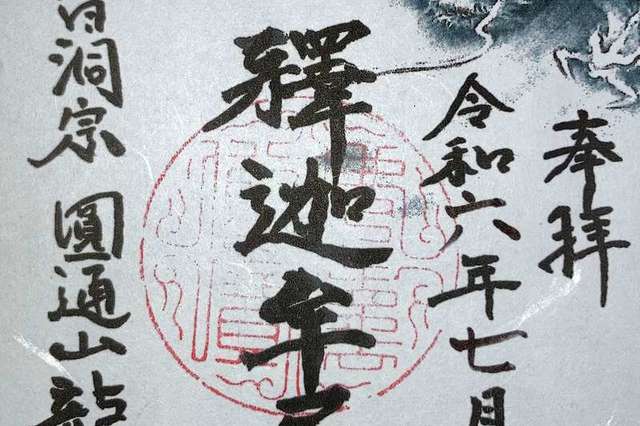 奉拝
令和六年七月
釋迦牟
洞宗 圓通山龍